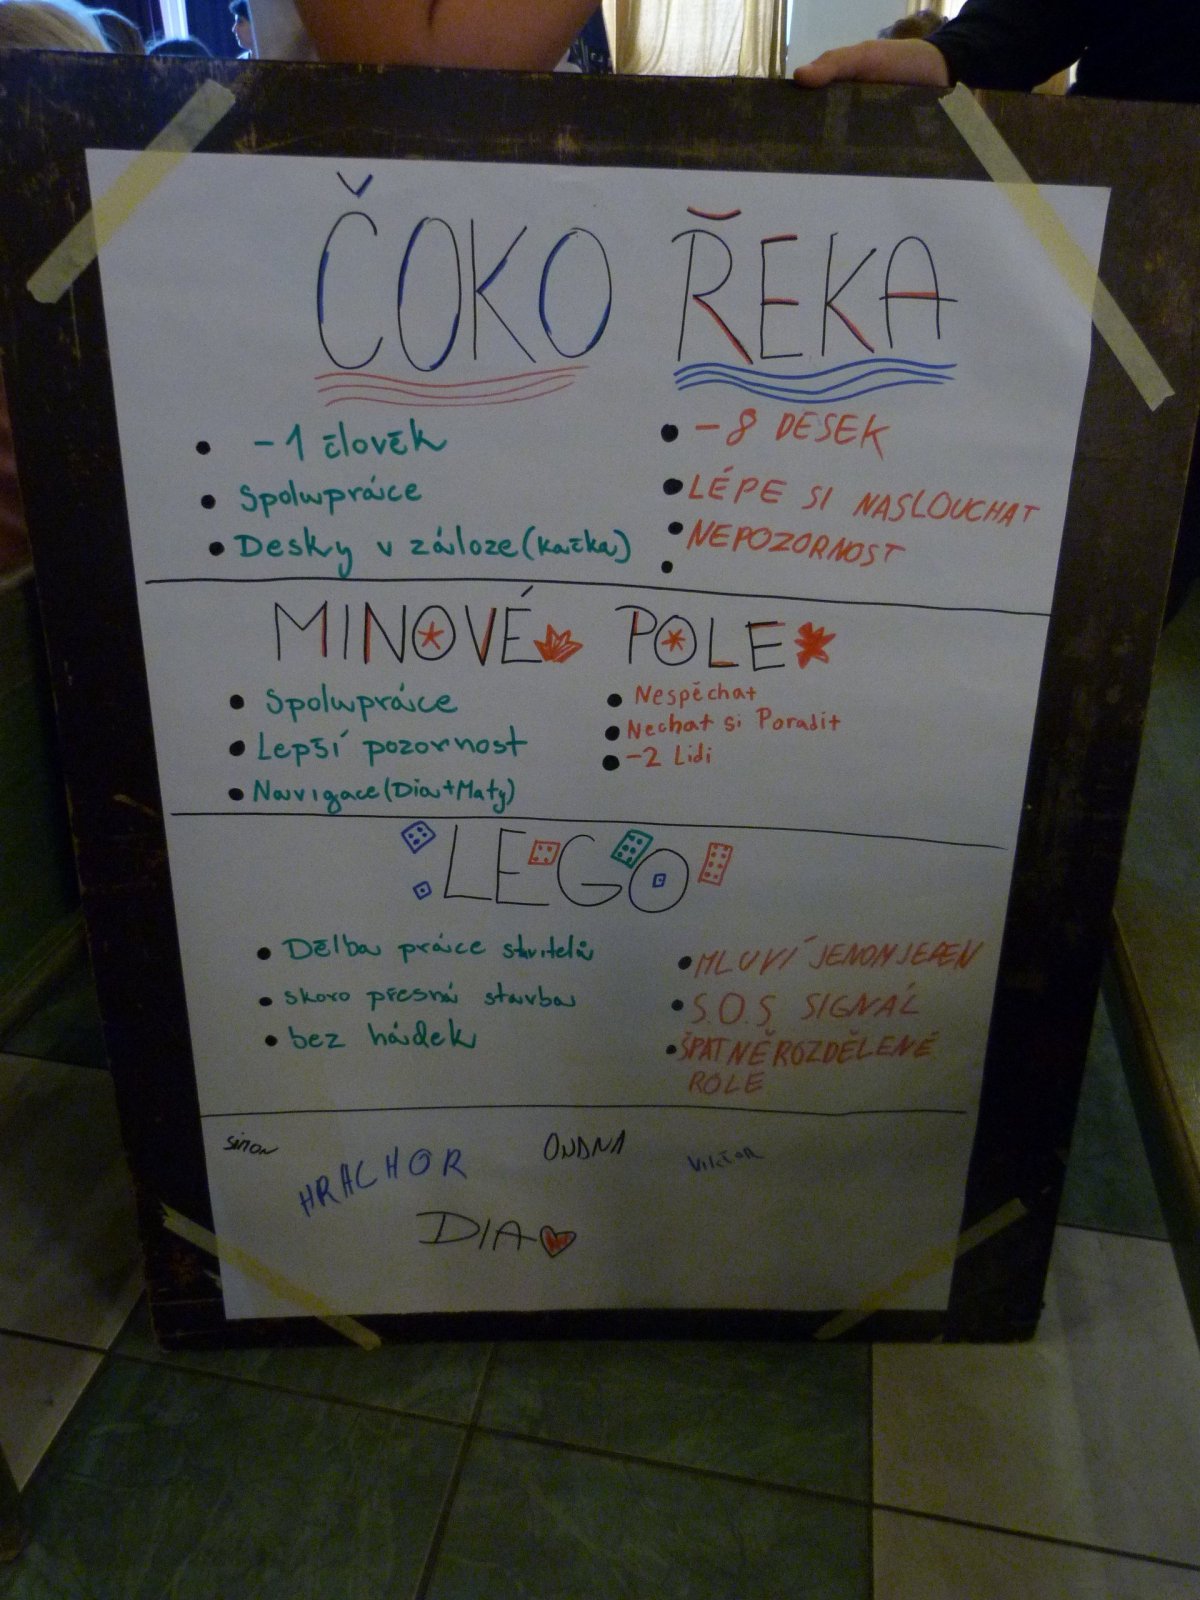 ČOKO ŘEKA
- 1 člověk
Spolupráce
Desky v záloze (kačka)
- 8 DESEK
LÉPE SI NASLOUCHAT
NEPOZORNOST
MINOVÉ POLE
Spolupráce
Lepší pozornost
Navigace (Dia + Maty)
Nespěchat
Nechat si Poradit
-2 Lidi
LEGO
Dělba práce stavitelů
skoro přesná stavba
bez hádek
MLUVÍ JENOM JEDEN
S.O.S SIGNÁL
ŠPATNĚ ROZDĚLENÉ
ROLE
Simon
HRACHOR
Viktor
DIA